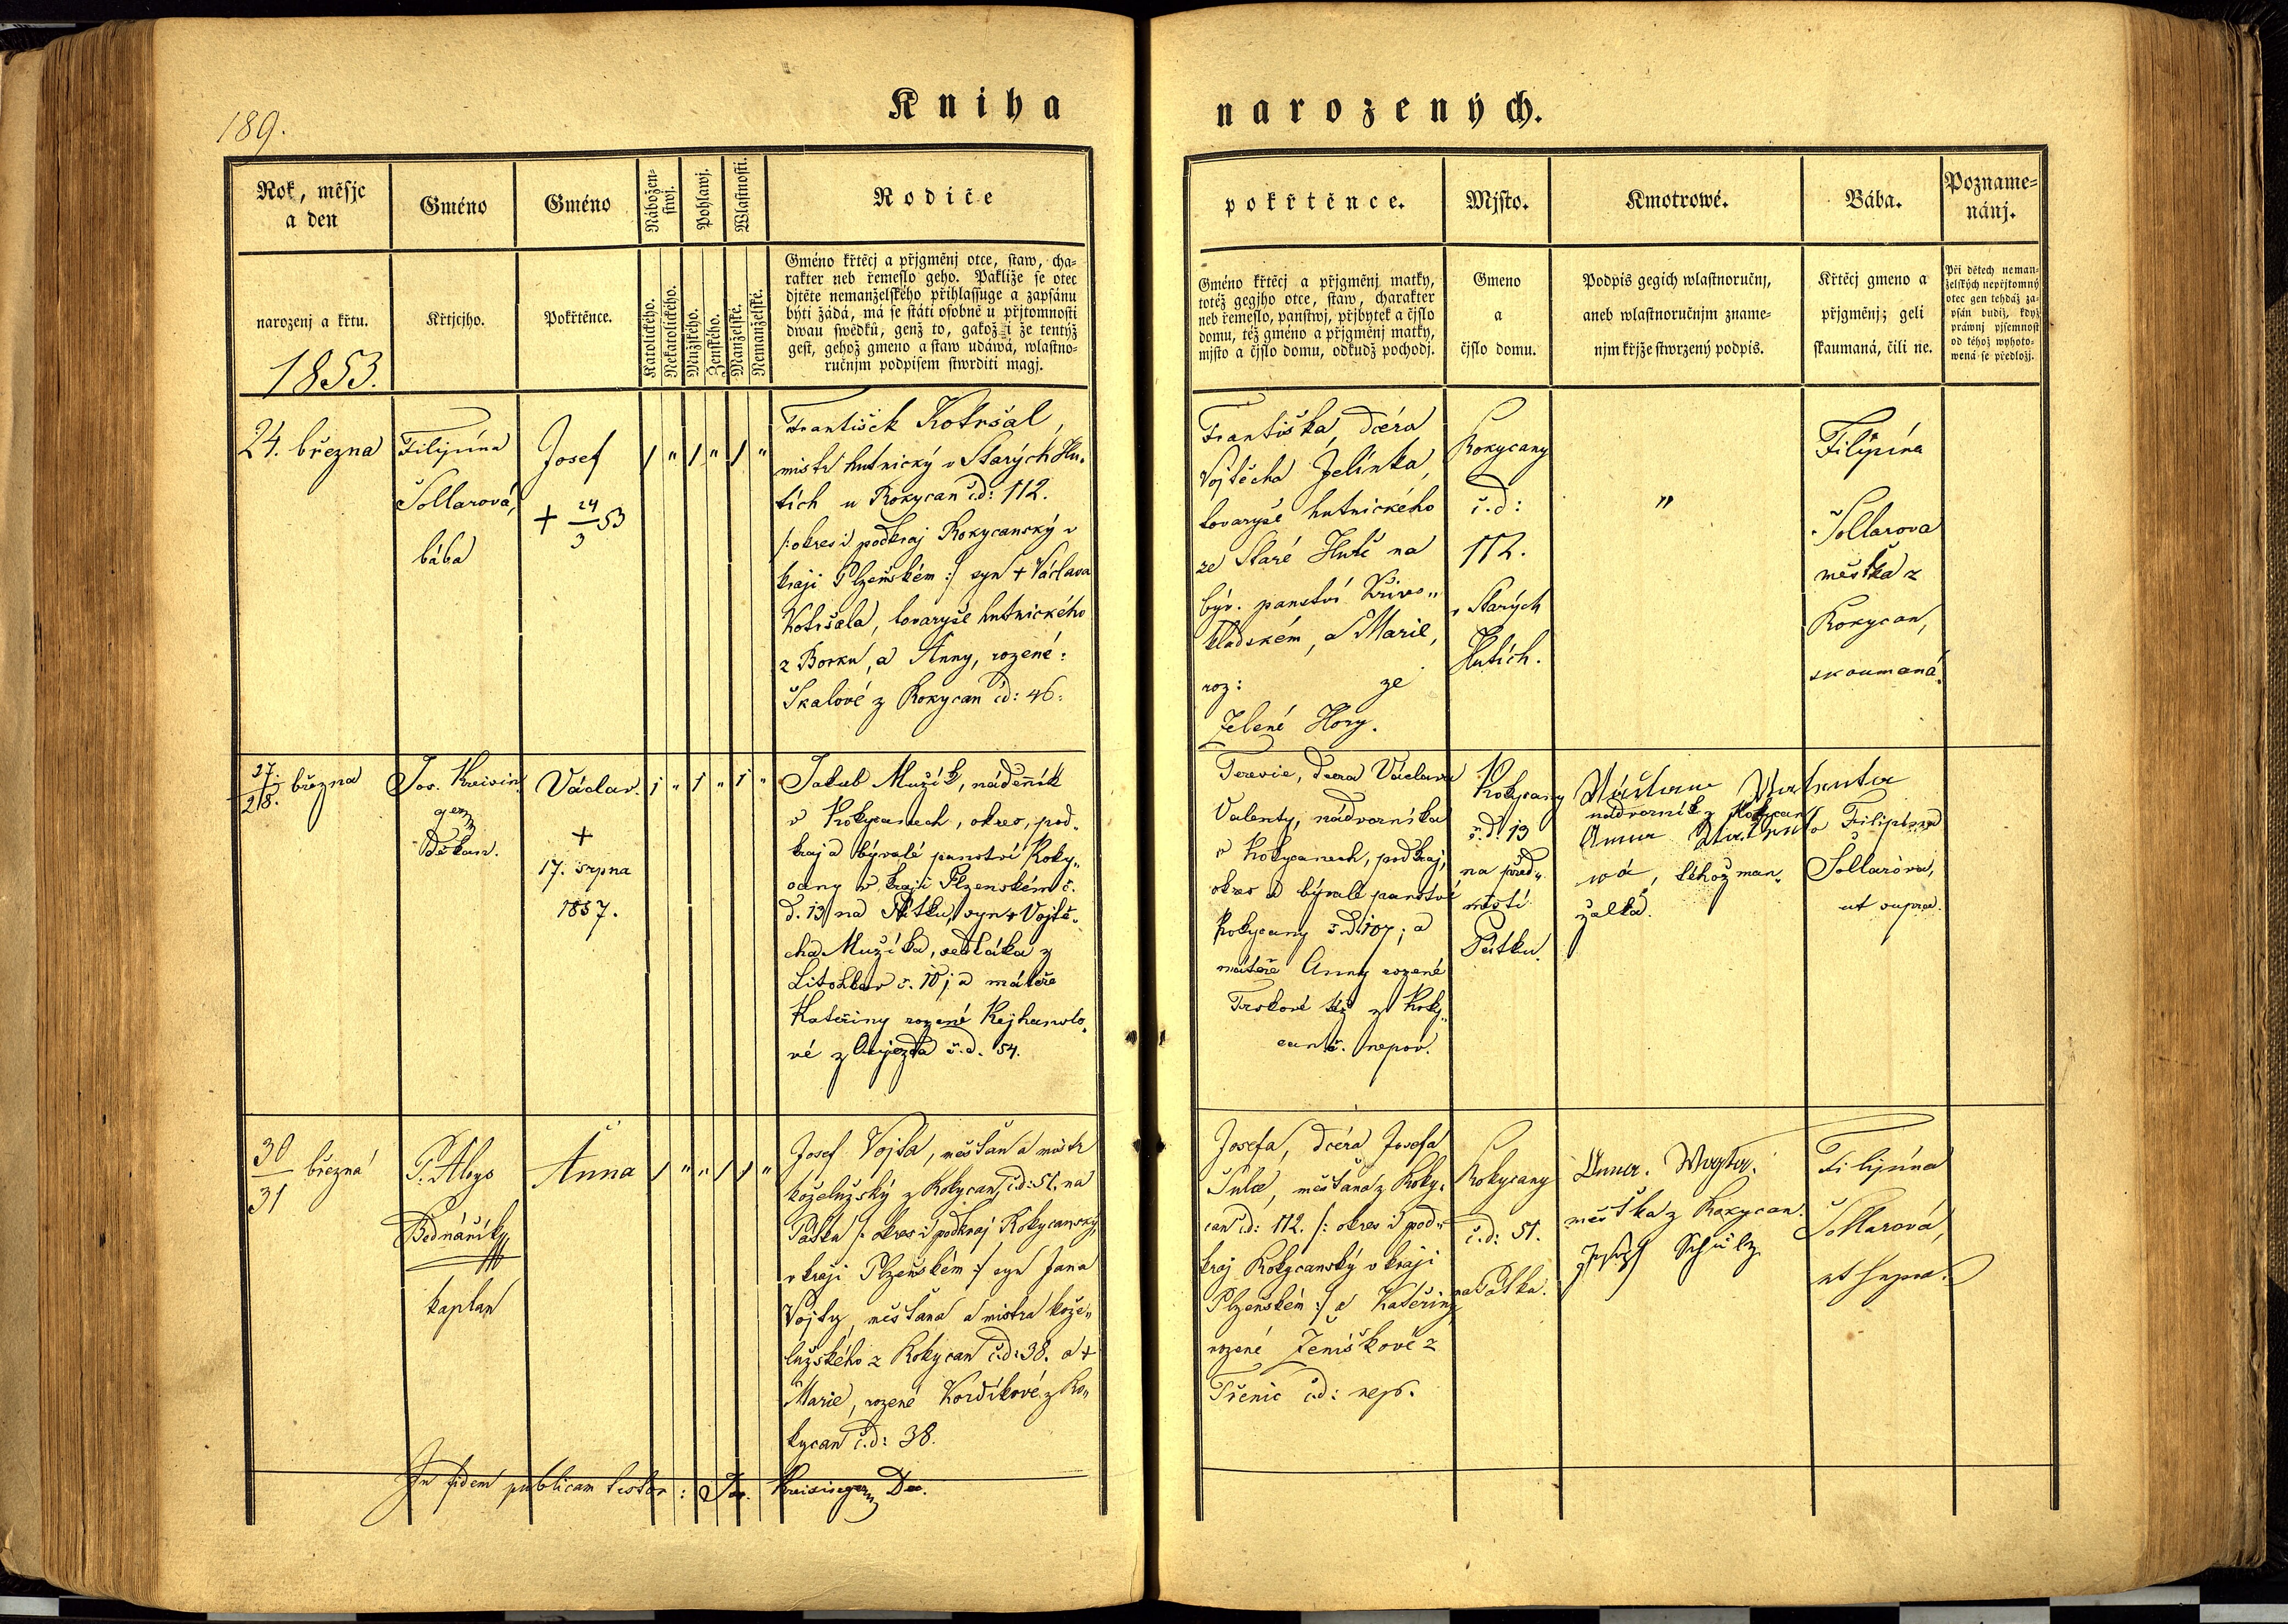 189.
Kniha
narozených.
Rok, měsjc
a den
narozenj a křtu.
1853.
Gméno
Křtjcjho.
Gméno
Pokřtěnce.
Nábožen-
stwj.
Katolického.
Nekatolického.
Pohlawj.
Mužského.
Ženského.
Wlastnosti.
Manželské.
Nemanželské.
Rodiče
Gméno křtěcj a přjgměnj otce, staw, cha-
rakter neb řemeslo geho. Pakliže se otec
djtěte nemanželského přihlassuge a zapsánu
býti žádá, má se státi osobně u přjtomnosti
dwau swědků, genž to, gakož i že tentýž
gest, gehož gmeno a staw udáwá, wlastno-
ručnjm podpisem stwrditi magj.
pokřtěnce.
Gméno křtěcj a přjgměnj matky,
totéž gegjho otce, staw, charakter
neb řemeslo, panstwj, přjbytek a čjslo
domu, též gméno a přjgměnj matky,
mjsto a čjslo domu, odkudž pochodj.
Mjsto.
Gmeno
a
čjslo domu.
Kmotrowé.
Podpis gegich wlastnoručnj,
aneb wlastnoručnjm zname-
njm křjže stwrzený podpis.
Bába.
Křtěcj gmeno a
přjgměnj; geli
skaumaná, čili ne.
Pozname-
nánj.
Při dětech neman-
želských nepřjtomný
otec gen tehdáž za-
psán budiž, když
práwnj pjsemnost
od téhož wyhoto-
wená se předložj.
24. března
Filipína
Šollarová,
bába
Josef
+ 24/3 53
1 " 1 " 1 "
František Kotršal,
mistr hutnický v Starých Hu-
tích u Rokycan čd: 112.
/: okres i podkraj Rokycanský v
kraji Plzeňském :/ syn + Václava
Kotršala, tovaryše hutnického
z Borku, a Anny, rozené:
Skalové z Rokycan čd: 46.
Františka, dcéra
Vojtěcha Jelínka,
tovaryše hutnického
ze Staré Hutě na
býv. panství Křivo„
kladském, a Marie,
roz: ze
Zelené Hory.
Rokycany
č.d:
112.
v Starých
Hutích.
"
Filipína
Šollarova
měštka z
Rokycan,
skoumaná.
27./28. března
Jos. Kreisin
ger
Děkan.
Václav.
+
17. srpna
1857.
1 " 1 " 1 "
Jakub Mužík, nádenník
v Rokycanech, okres, pod„
kraj a bývalé panství Roky„
cany v kraji Plzenském č.
d. 13 na Pátku, syn + Vojtě„
cha Mužíka, sedláka z
Litohlav č. 10; a mateře
Kateřiny rozené Rejhanslo„
vé z Oujezda č.d. 54.
Terezie, dcera Václava
Valenty, nádvorníka
v Rokycanech, podkraj,
okres a bývalé panství
Rokycany č.d. 107; a
mateře Anny rozené
Trskové též z Roky„
can č. nepov.
Rokycany
č.d 13
na před„
městí
Pátku.
Václav Valenta
nádvorník z Rokycan
Anna Valento
wá, téhož man„
želka.
Filipina
Šollarova,
ut supra.
30/31 března
P. Aloys
Bednářík
kaplan
Anna
1 " " 1 1 "
Josef Vojta, měšťan a mistr
koželužský z Rokycan, čd: 51. na
Pátku /: okres i podkraj Rokycanský,
v kraji Plzeňském :/ syn Jana
Vojty, měšťana a mistra kože„
lužského z Rokycan čd: 38. a +
Marie, rozené Kordíkové z Ro„
kycan č.d: 38.
Josefa, dcéra Josefa
Šulce, měšťana z Roky„
can čd: 112. /: okres i pod„
kraj Rokycanský v kraji
Plzenském :/ a Kateřiny
rozené Ženíškové z
Třenic čd: nep.
Rokycany
č.d: 51.
na Pátku.
Anna. Wogta.
měštka z Rokycan.
Joseph Schulz
Filipína
Šollarová,
ut supra.
In fidem publicam testor: Jos. Kreisinger Dec.